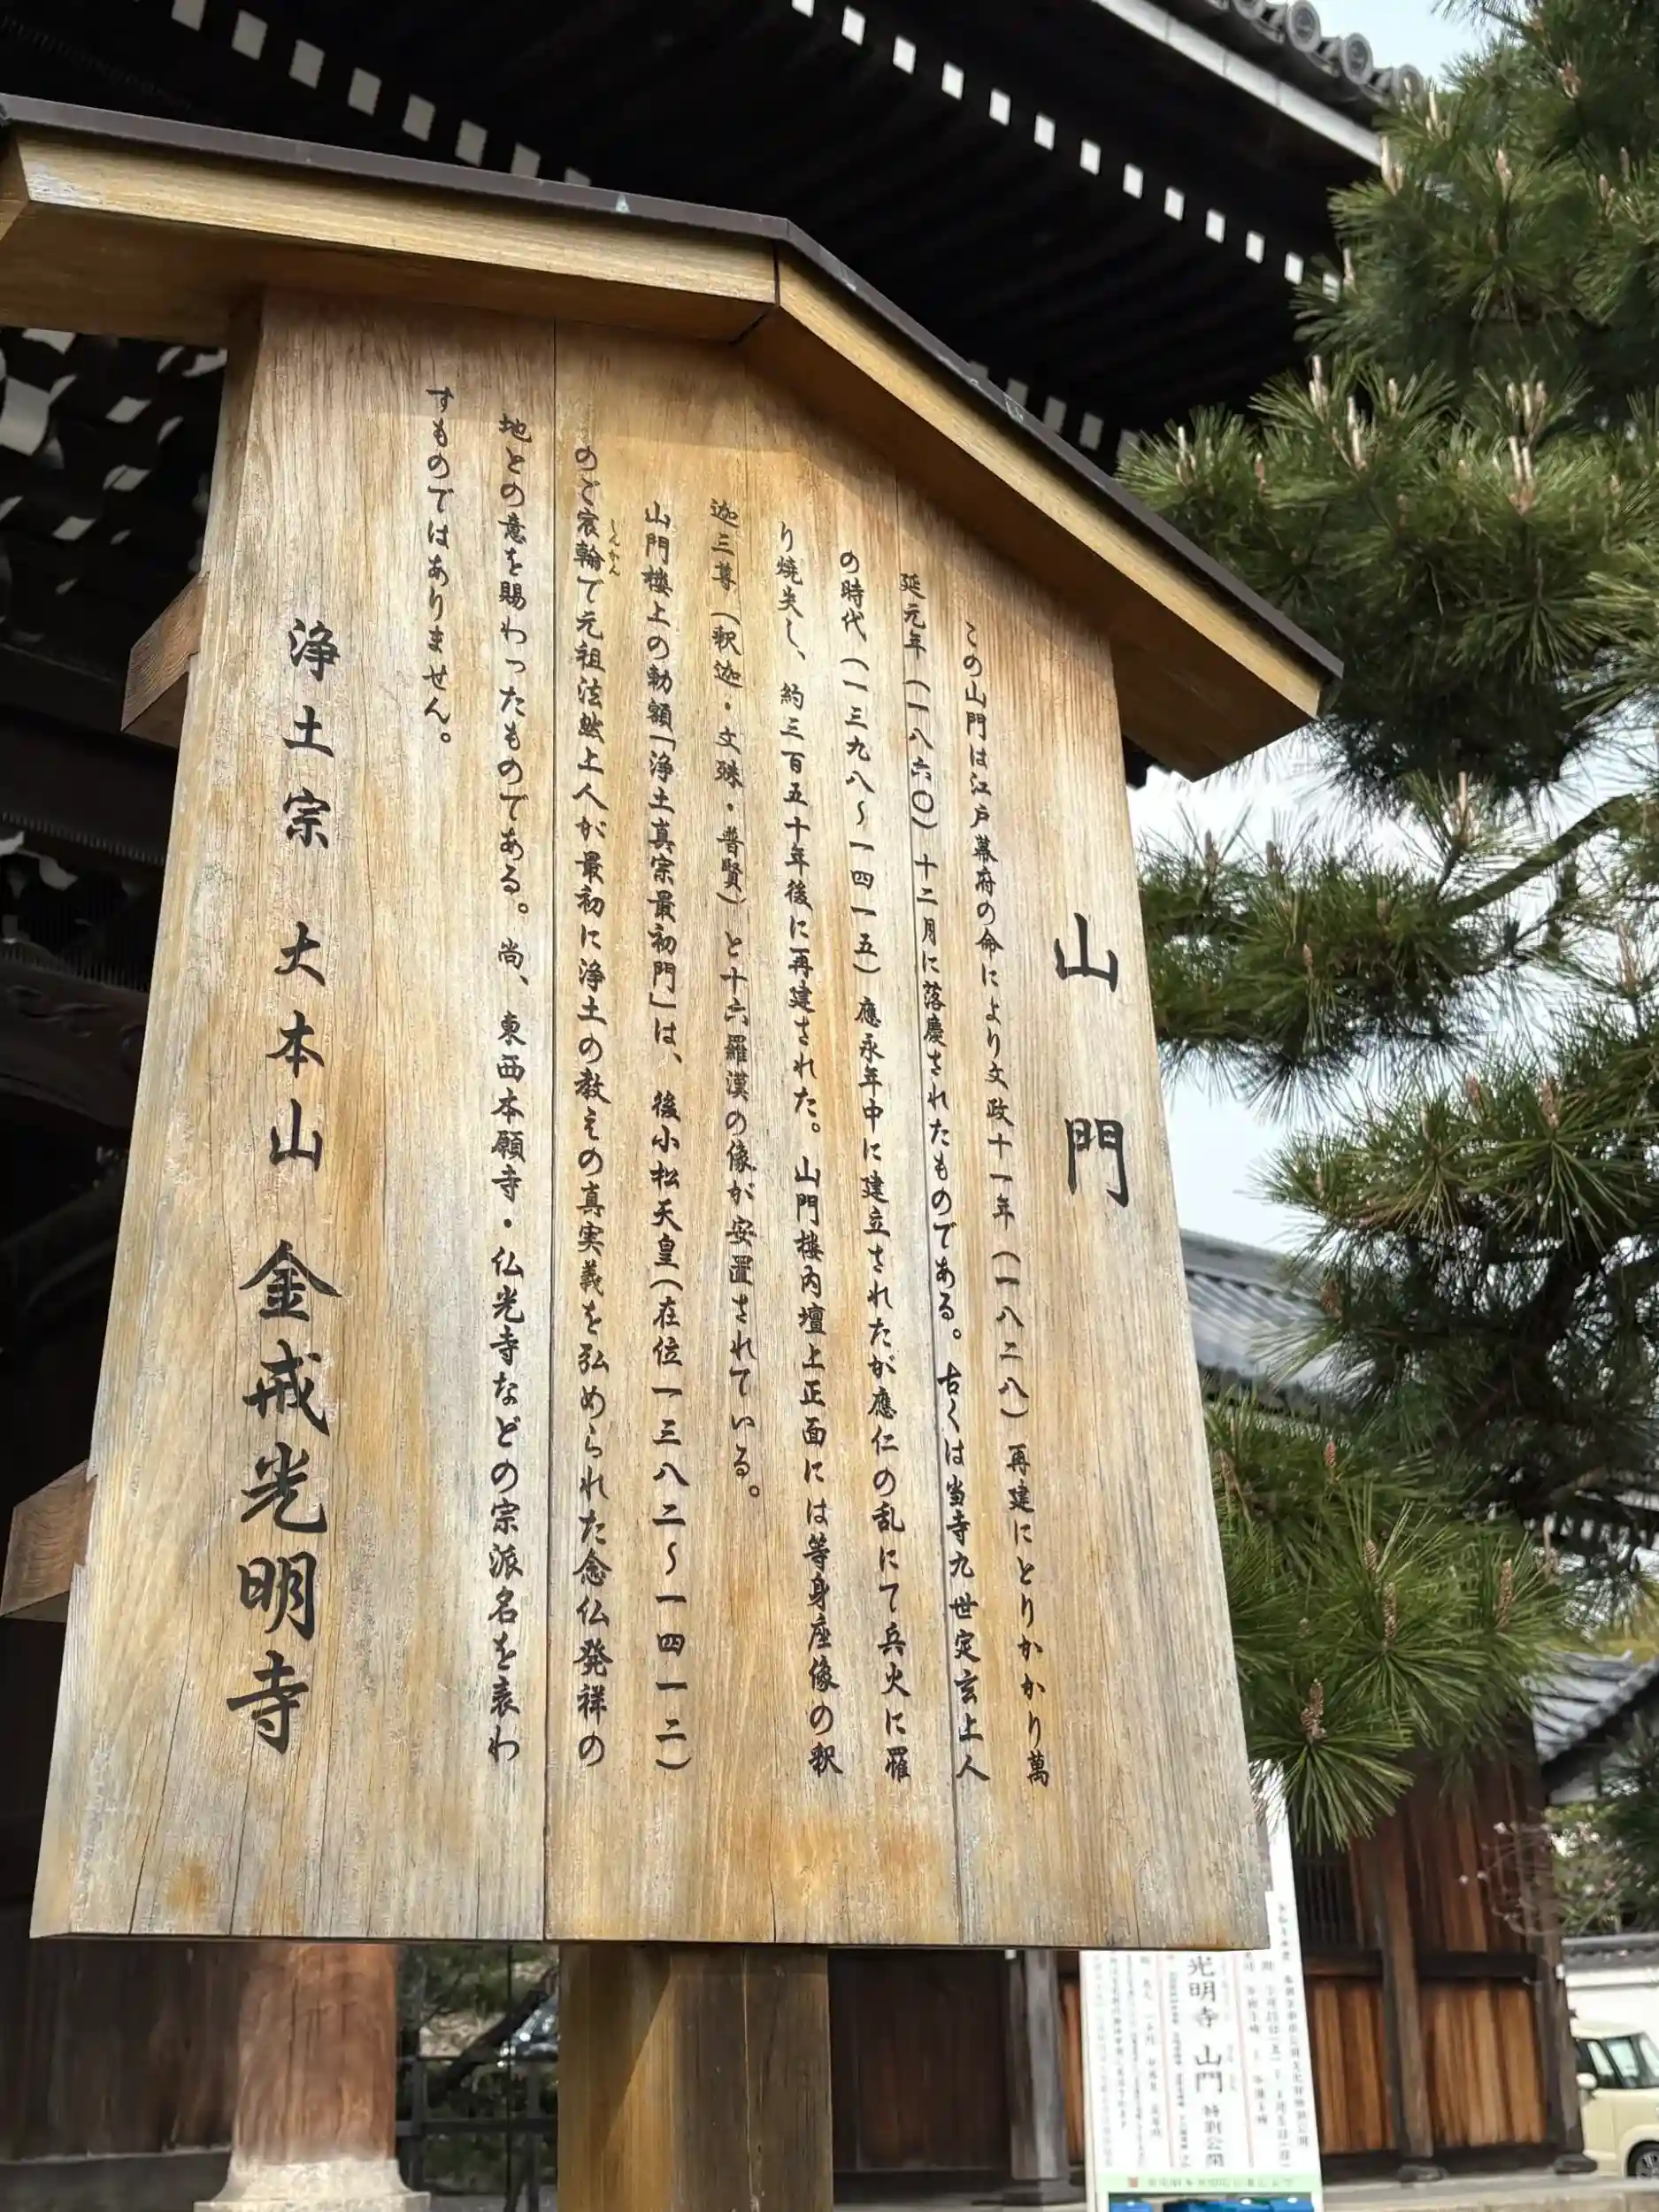 山門
この山門は江戸幕府の命により文政十一年(一八二八)再建にとりかかり萬
延元年(一八六〇)十二月に落慶されたものである。古くは当寺九世定玄上人
の時代(一三九八〜一四一五)應永年中に建立されたが應仁の乱にて兵火に罹
り焼失し、約三百五十年後に再建された。山門楼内壇上正面には等身座像の釈
迦三尊(釈迦・文殊・普賢)と十六羅漢の像が安置されている。
山門楼上の勅額「浄土真宗最初門」は、後小松天皇(在位一三八二〜一四一二)
のご宸翰で元祖法然上人が最初に浄土の教えの真実義を弘められた念仏発祥の
しんかん
地との意を賜わったものである。尚、東西本願寺・仏光寺などの宗派名を表わ
すものではありません。
浄土宗 大本山 金戒光明寺
光明寺 山門 特別公開